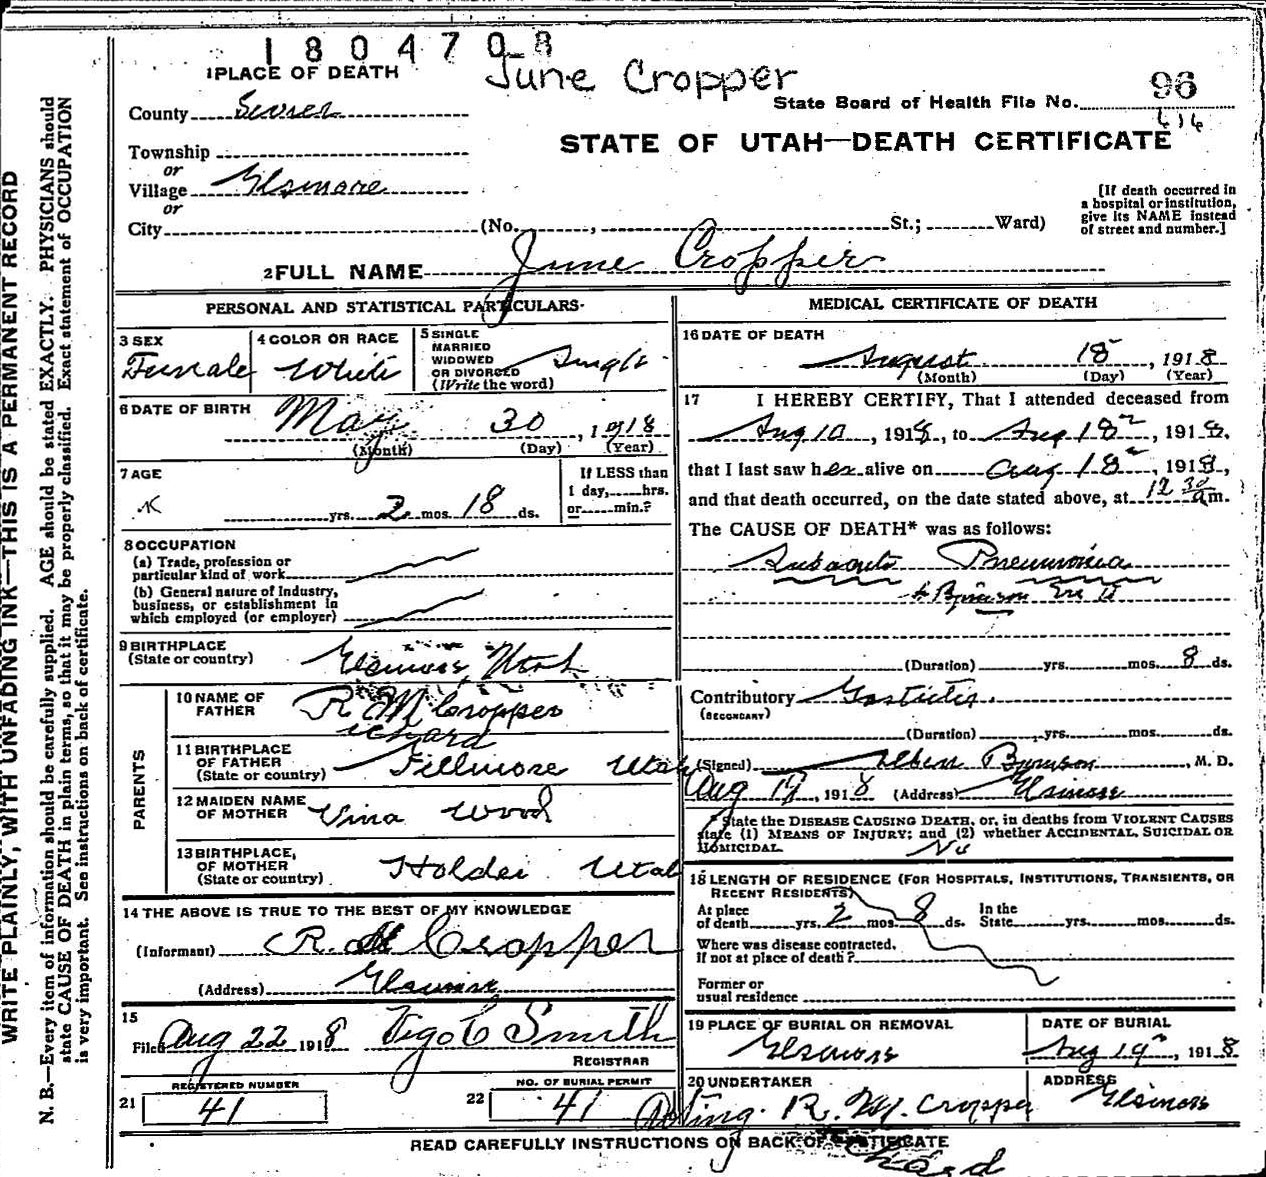 1804708
June Cropper
96
1 PLACE OF DEATH
State Board of Health File No.
County Sevier
STATE OF UTAH—DEATH CERTIFICATE
Township
or
Village Elsinore
or
City (No. , St.; Ward)
[If death occurred in
a hospital or institution,
give its NAME instead
of street and number.]
2 FULL NAME June Cropper
PERSONAL AND STATISTICAL PARTICULARS
3 SEX
Female
4 COLOR OR RACE
White
5 SINGLE
MARRIED
WIDOWED
OR DIVORCED
(Write the word)
Single
6 DATE OF BIRTH
May 30, 1918
(Month) (Day) (Year)
7 AGE
yrs. 2 mos. 18 ds.
If LESS than
1 day, hrs.
or min.?
8 OCCUPATION
(a) Trade, profession or
particular kind of work
(b) General nature of Industry,
business, or establishment in
which employed (or employer)
9 BIRTHPLACE
(State or country) Elsinore Utah
PARENTS
10 NAME OF
FATHER R M Cropper
ichard
11 BIRTHPLACE
OF FATHER
(State or country) Fillmore Utah
12 MAIDEN NAME
OF MOTHER Vina Wood
13 BIRTHPLACE,
OF MOTHER
(State or country) Holden Utah
14 THE ABOVE IS TRUE TO THE BEST OF MY KNOWLEDGE
(Informant) R. M Cropper
(Address) Elsinore
15
Filed Aug 22 1918 Vigo C Smith
REGISTRAR
21 REGISTERED NUMBER
41
22 NO. OF BURIAL PERMIT
41
MEDICAL CERTIFICATE OF DEATH
16 DATE OF DEATH
August 18, 1918
(Month) (Day) (Year)
17 I HEREBY CERTIFY, That I attended deceased from
Aug 10, 1918, to Aug 18, 1918,
that I last saw her alive on Aug 18, 1918,
and that death occurred, on the date stated above, at 12 30 am.
The CAUSE OF DEATH* was as follows:
Subacute Pneumonia
(Duration) yrs. mos. 8 ds.
Contributory Gastritis.
(SECONDARY)
(Duration) yrs. mos. ds.
(Signed) M. D.
Aug 19, 1918 (Address) Elsinore
State the DISEASE CAUSING DEATH, or, in deaths from VIOLENT CAUSES
state (1) MEANS OF INJURY; and (2) whether ACCIDENTAL, SUICIDAL OR
HOMICIDAL. No
18 LENGTH OF RESIDENCE (FOR HOSPITALS, INSTITUTIONS, TRANSIENTS, OR
RECENT RESIDENTS)
At place
of death yrs. 2 mos. 8 ds.
In the
State yrs. mos. ds.
Where was disease contracted,
if not at place of death?
Former or
usual residence
19 PLACE OF BURIAL OR REMOVAL
Elsinore
DATE OF BURIAL
Aug 19, 1918
20 UNDERTAKER
Acting. R. M. Cropper
ADDRESS
Elsinore
READ CAREFULLY INSTRUCTIONS ON BACK OF CERTIFICATE
WRITE PLAINLY, WITH UNFADING INK—THIS IS A PERMANENT RECORD
N. B.—Every item of information should be carefully supplied. AGE should be stated EXACTLY. PHYSICIANS should
state CAUSE OF DEATH in plain terms, so that it may be properly classified. Exact statement of OCCUPATION
is very important. See instructions on back of certificate.